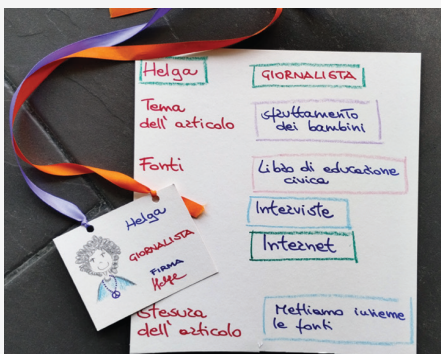 Helga GIORNALISTA
Tema
dell'articolo
sfruttamento
dei bambini
Fonti
Libro di educazione
civica
Interviste
Internet
Stesura
dell'articolo
Mettiamo insieme
le fonti
Helga
GIORNALISTA
FIRMA
Helga